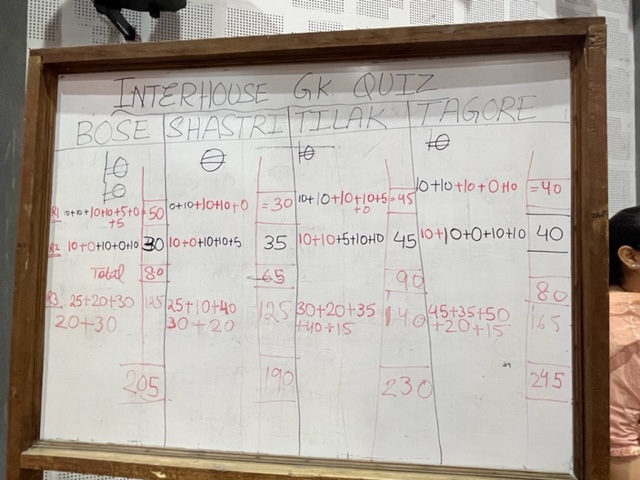 INTERHOUSE GK QUIZ
BOSE SHASTRI TILAK TAGORE
R1 10+10+10+10+5+0+5 =50
0+10+10+10+0 =30
10+10+10+10+5+0 =45
10+10+10+0+10 =40
R2 10+0+10+0+10 30
10+0+10+10+5 35
10+10+5+10+10 45
10+10+0+10+10 40
Total 80 65 90 80
R3 25+20+30
20+30 125
25+10+40
30+20 125
30+20+35
+40+15 140
45+35+50
+20+15 165
205 190 230 245